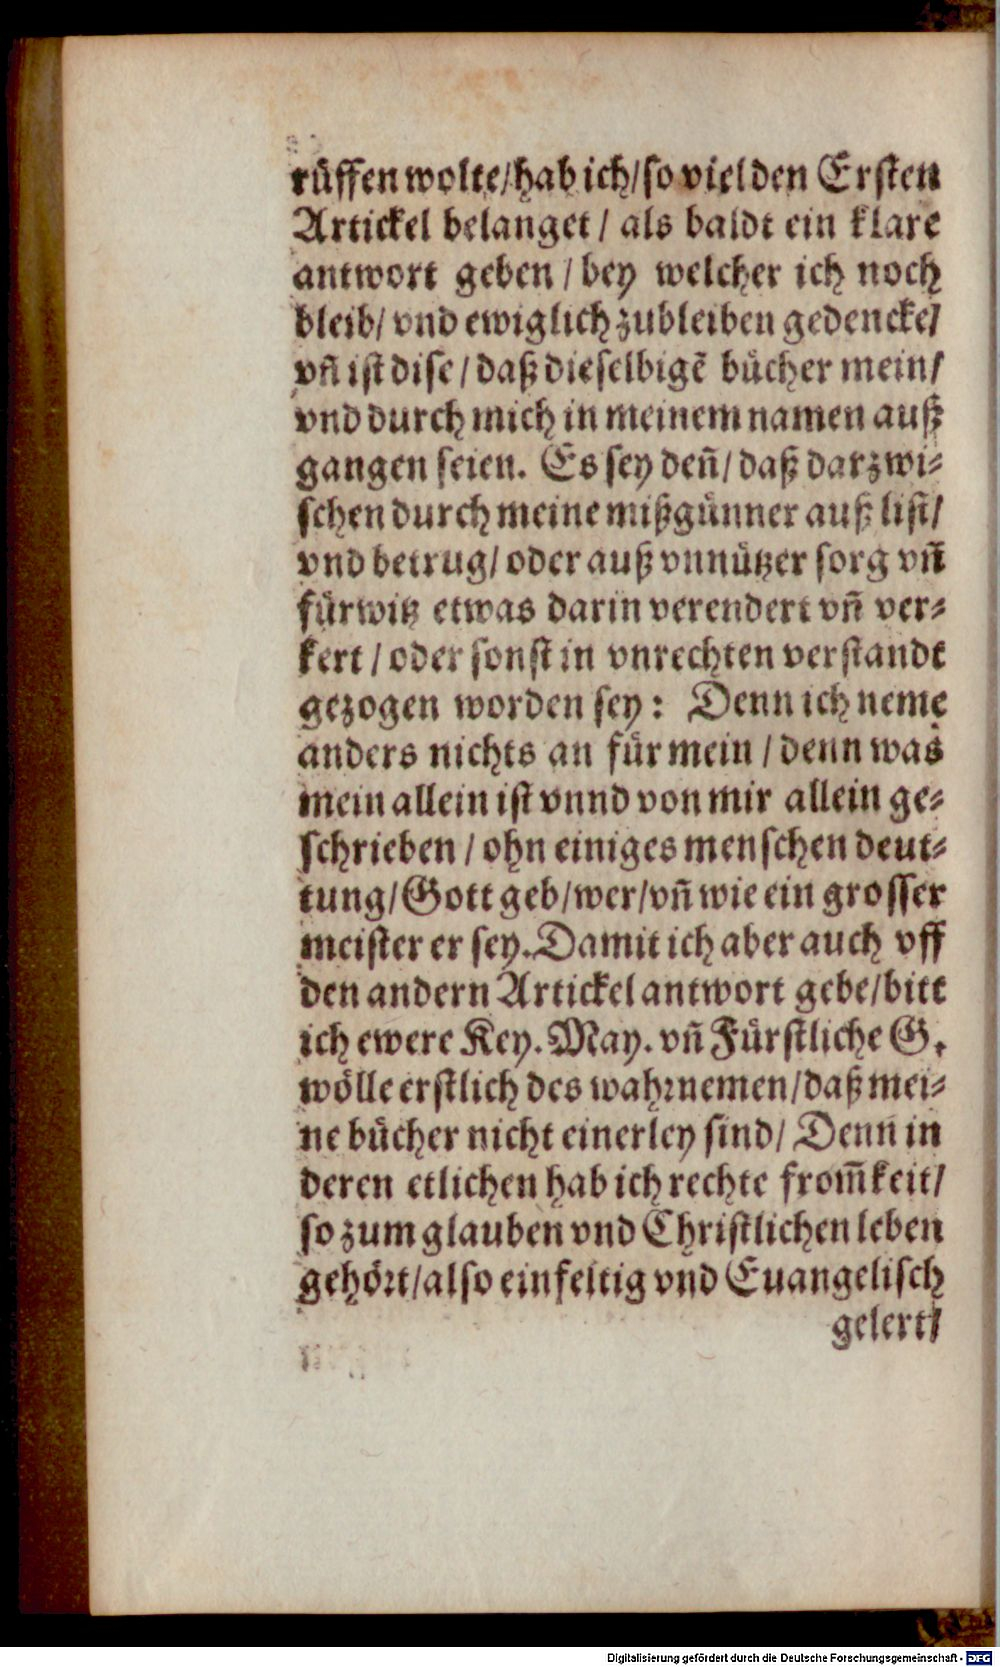 rüffen wolte/hab ich/so viel den Ersten
Artickel belanget / als baldt ein klare
antwort geben / bey welcher ich noch
bleib/ vnd ewiglich zubleiben gedencke/
vñ ist dise / daß dieselbigẽ bücher mein/
vnd durch mich in meinem namen auß
gangen seien. Es sey deñ/ daß darzwi⸗
schen durch meine mißgünner auß list/
vnd betrug/ oder auß vnnützer sorg vñ
fürwitz etwas darin verendert vñ ver⸗
kert / oder sonst in vnrechten verstandt
gezogen worden sey: Denn ich neme
anders nichts an für mein / denn was
mein allein ist vnnd von mir allein ge⸗
schrieben / ohn einiges menschen deut⸗
tung/Gott geb/wer/vñ wie ein grosser
meister er sey. Damit ich aber auch vff
den andern Artickel antwort gebe/bitt
ich ewere Key. May. vñ Fürstliche G.
wölle erstlich des wahrnemen/daß mei⸗
ne bücher nicht einerley sind/ Denn in
deren etlichen hab ich rechte from̃keit/
so zum glauben vnd Christlichen leben
gehört/also einfeltig vnd Euangelisch
gelert/
Digitalisierung gefördert durch die Deutsche Forschungsgemeinschaft - DFG